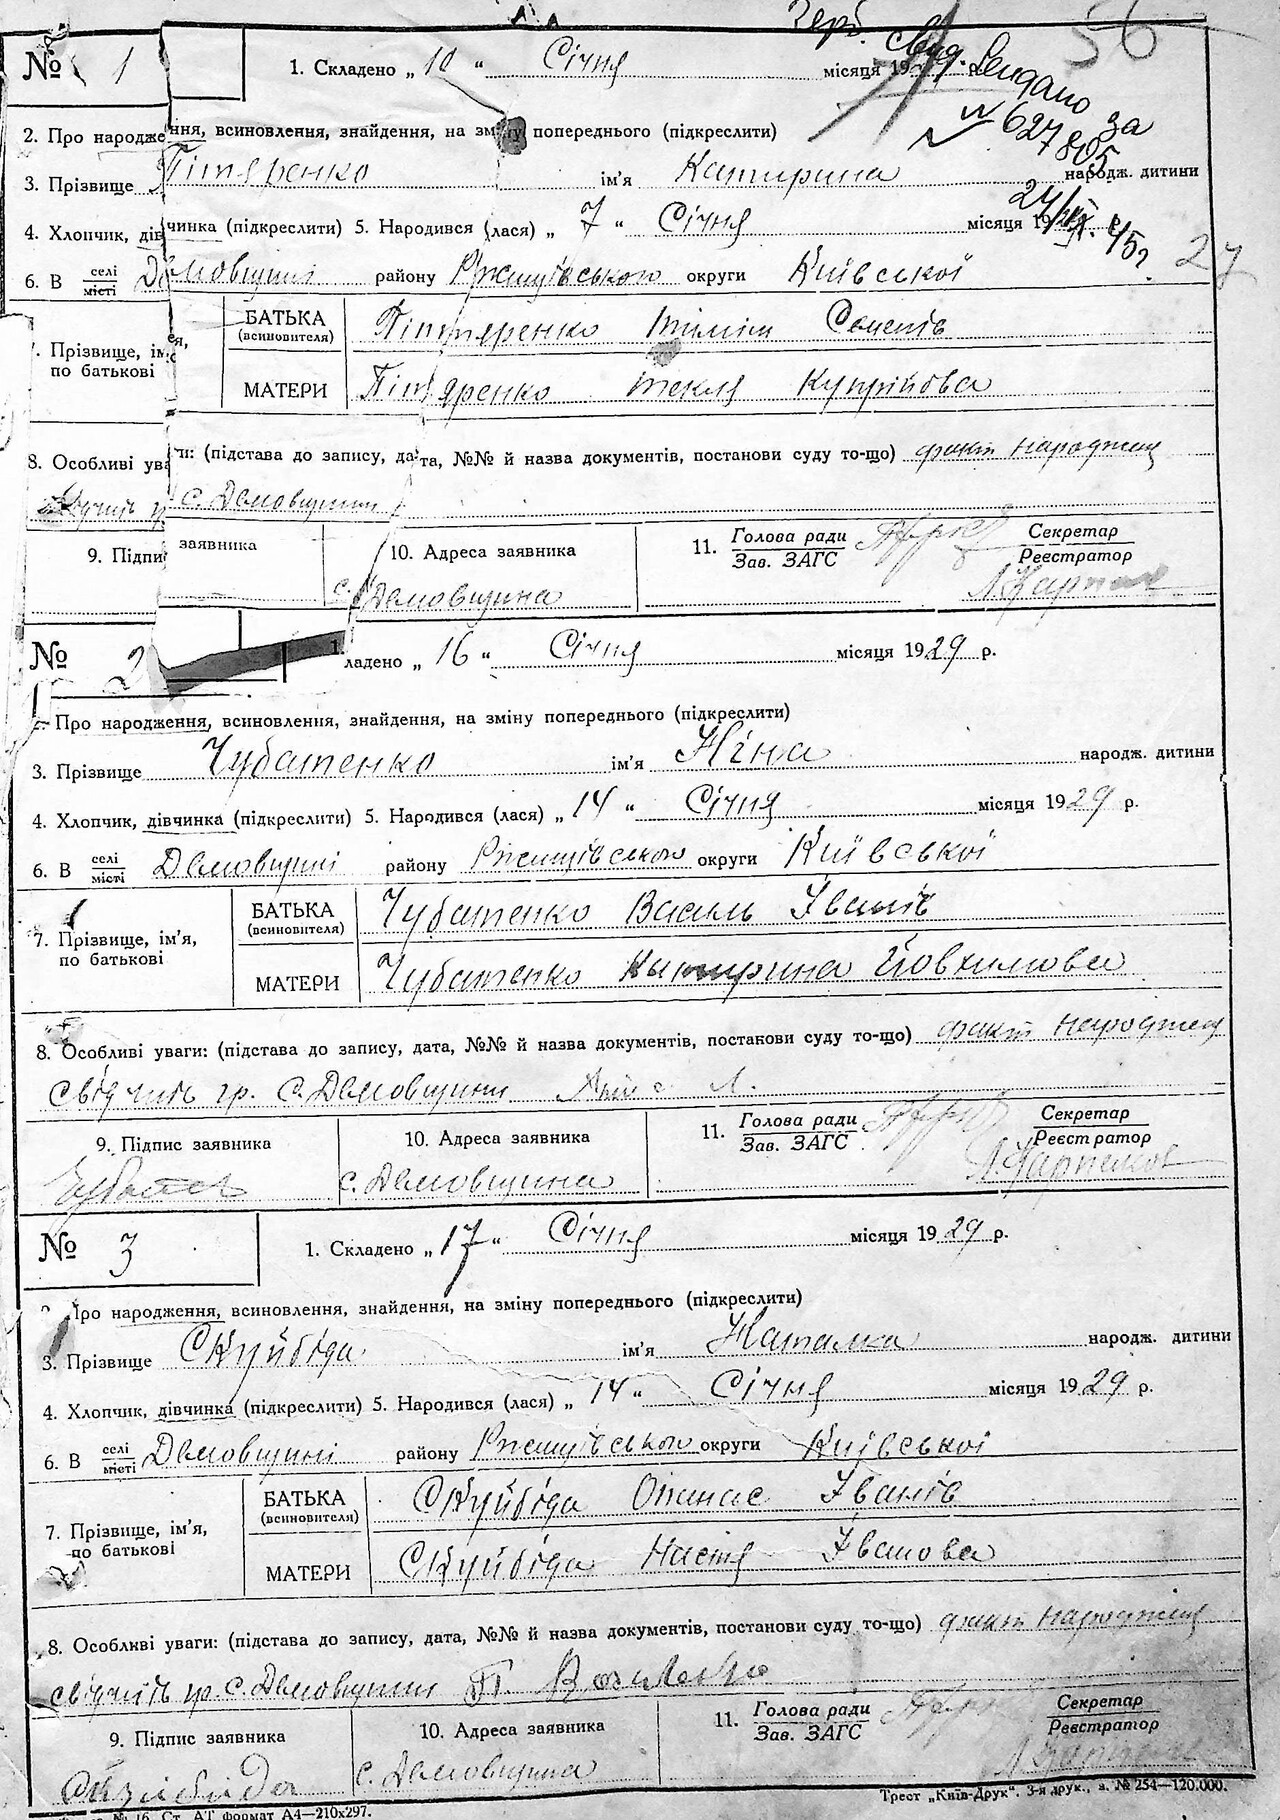 56
Свид. выдано за
№ 627805
24/IX. 45г
27
№ 1
1. Складено „ 10 “ Січня місяця 19 р.
2. Про народження, всиновлення, знайдення, на зміну попереднього (підкреслити)
3. Прізвище Пітяренко ім'я Катирина народж. дитини
4. Хлопчик, дівчинка (підкреслити) 5. Народився (лася) „ 7 “ Січня місяця 19
6. В селі/місті Демовщині району Ржищівського округи Київської
7. Прізвище, ім'я, по батькові
БАТЬКА (всиновителя) Пітяренко Семенів
МАТЕРИ Пітяренко Текля Купрійова
8. Особливі уваги: (підстава до запису, дата, №№ й назва документів, постанови суду то-що) факт народжен
с. Демовщини
9. Підпис заявника
10. Адреса заявника
11. Голова ради / Зав. ЗАГС
Секретар / Реєстратор
с. Демовщина
№ 2
ладено „ 16 “ Січня місяця 1929 р.
Про народження, всиновлення, знайдення, на зміну попереднього (підкреслити)
3. Прізвище Чубатенко ім'я Ніна народж. дитини
4. Хлопчик, дівчинка (підкреслити) 5. Народився (лася) „ 14 “ Січня місяця 1929 р.
6. В селі/місті Демовщині району Ржищівського округи Київської
7. Прізвище, ім'я, по батькові
БАТЬКА (всиновителя) Чубатенко Василь Іванів
МАТЕРИ Чубатенко Катирина Йовхимова
8. Особливі уваги: (підстава до запису, дата, №№ й назва документів, постанови суду то-що) факт народжен
свідчить гр. с. Демовщини
9. Підпис заявника
10. Адреса заявника
11. Голова ради / Зав. ЗАГС
Секретар / Реєстратор
с. Демовщина
№ 3
1. Складено „ 17 “ Січня місяця 1929 р.
Про народження, всиновлення, знайдення, на зміну попереднього (підкреслити)
3. Прізвище Скуйбіда ім'я Наталка народж. дитини
4. Хлопчик, дівчинка (підкреслити) 5. Народився (лася) „ 14 “ Січня місяця 1929 р.
6. В селі/місті Демовщині району Ржищівського округи Київської
7. Прізвище, ім'я, по батькові
БАТЬКА (всиновителя) Скуйбіда Опанас Іванів
МАТЕРИ Скуйбіда Настя Іванова
8. Особливі уваги: (підстава до запису, дата, №№ й назва документів, постанови суду то-що) факт народжен
свідчить гр. с. Демовщини П.
9. Підпис заявника
10. Адреса заявника
11. Голова ради / Зав. ЗАГС
Секретар / Реєстратор
с. Демовщина
№ 16. Ст. АТ формат А4—210х297.
Трест „Київ-Друк“. 3-я друк., з. № 254—120.000.